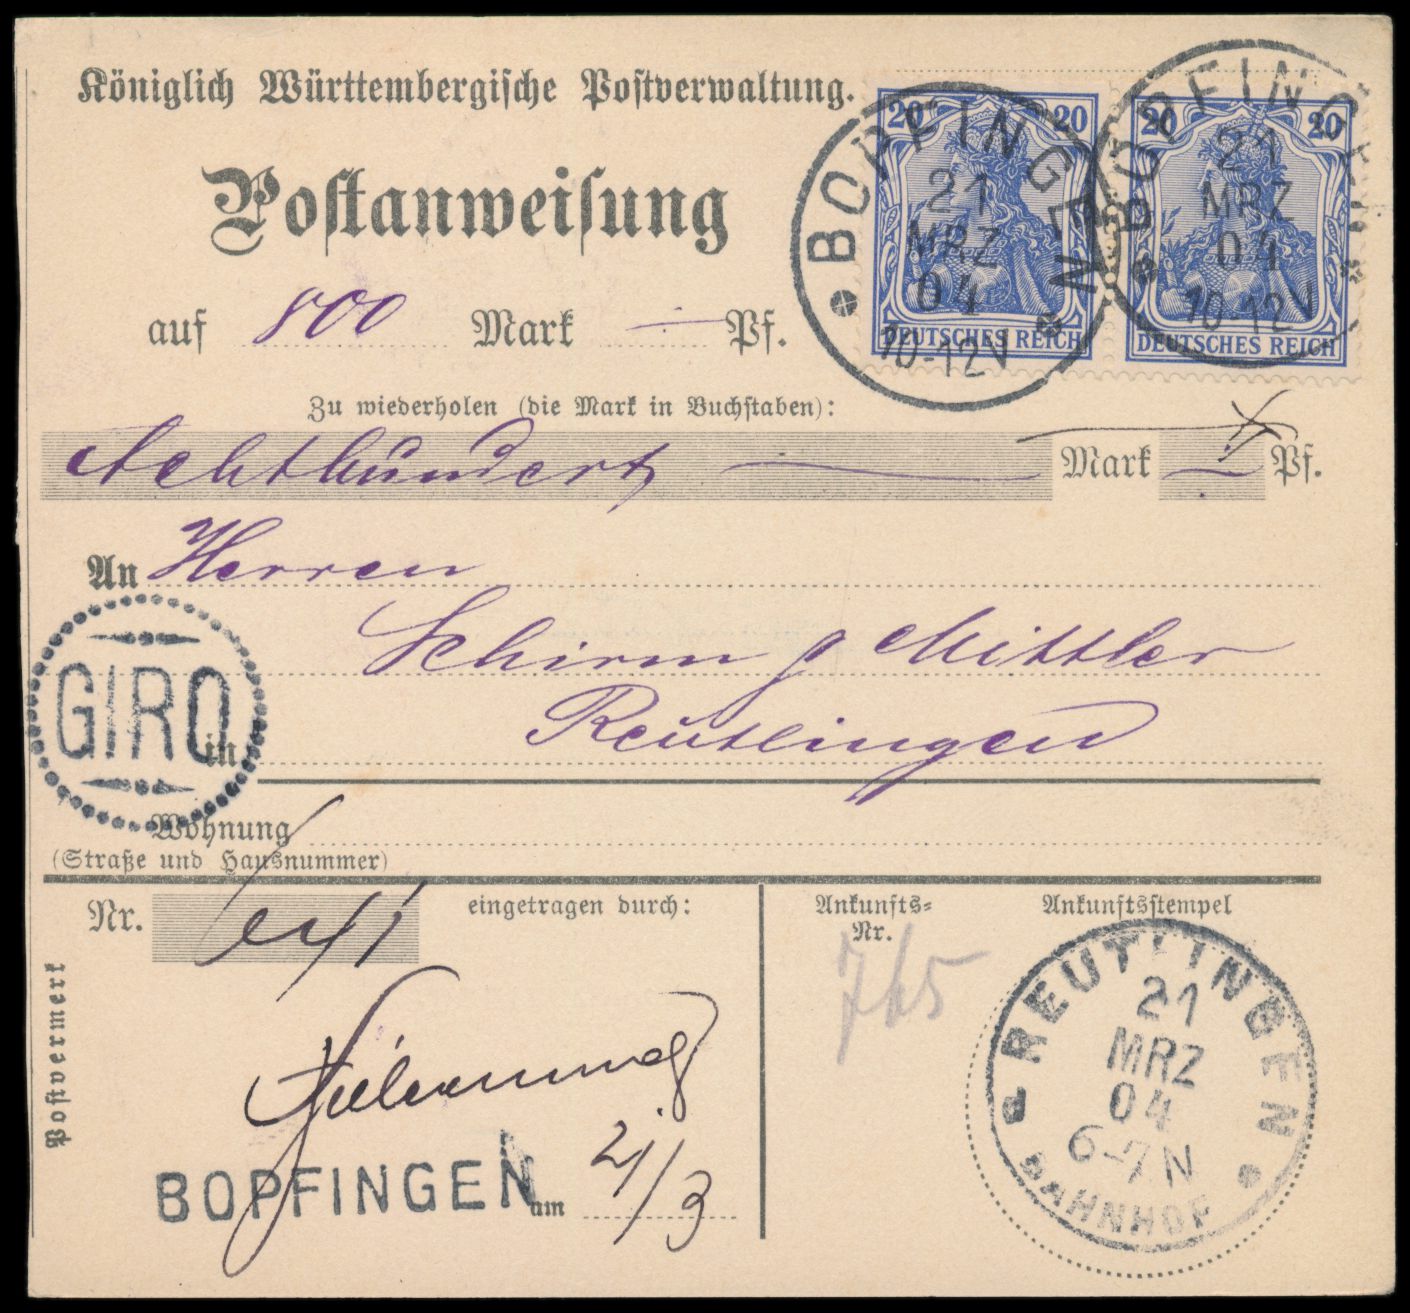 Königlich Württembergische Postverwaltung.
Postanweisung
auf 800 Mark — Pf.
20 20
DEUTSCHES REICH
20 20
DEUTSCHES REICH
BOPFINGEN
21
MRZ
04
10-12V
BOPFINGEN
21
MRZ
04
10-12V
Zu wiederholen (die Mark in Buchstaben):
Achthundert — Mark — Pf.
An Herren
Schirm & Mittler
GIRO
in Reutlingen
Wohnung
(Straße und Hausnummer)
Postvermerk
Nr.
eingetragen durch:
BOPFINGEN am 21/3
Ankunfts-
Nr.
765
Ankunftsstempel
REUTLINGEN
21
MRZ
04
6-7N
BAHNHOF